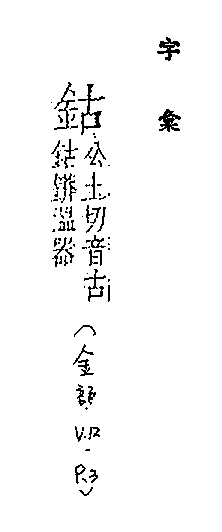 字彙
鈷
公土切音古
鈷鏻溫器
(金部 V.12 - P.3)